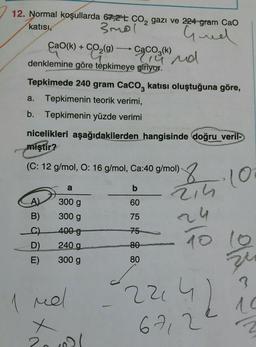 12. Normal koşullarda 67,2 L CO₂ gazı ve 224 gram CaO
katısı, 3mol
CaO(k) + CO₂(g) ⟶ CaCO₃(k)
denklemine göre tepkimeye giriyor.
Tepkimede 240 gram CaCO₃ katısı oluştuğuna göre,
a. Tepkimenin teorik verimi,
b. Tepkimenin yüzde verimi
nicelikleri aşağıdakilerden hangisinde doğru veril-
miştir?
(C: 12 g/mol, O: 16 g/mol, Ca:40 g/mol)
a b
A) 300 g 60
B) 300 g 75
C) 400 g 75
D) 240 g 80
E) 300 g 80
24
10 10
1 mol 22,4
x 67,2